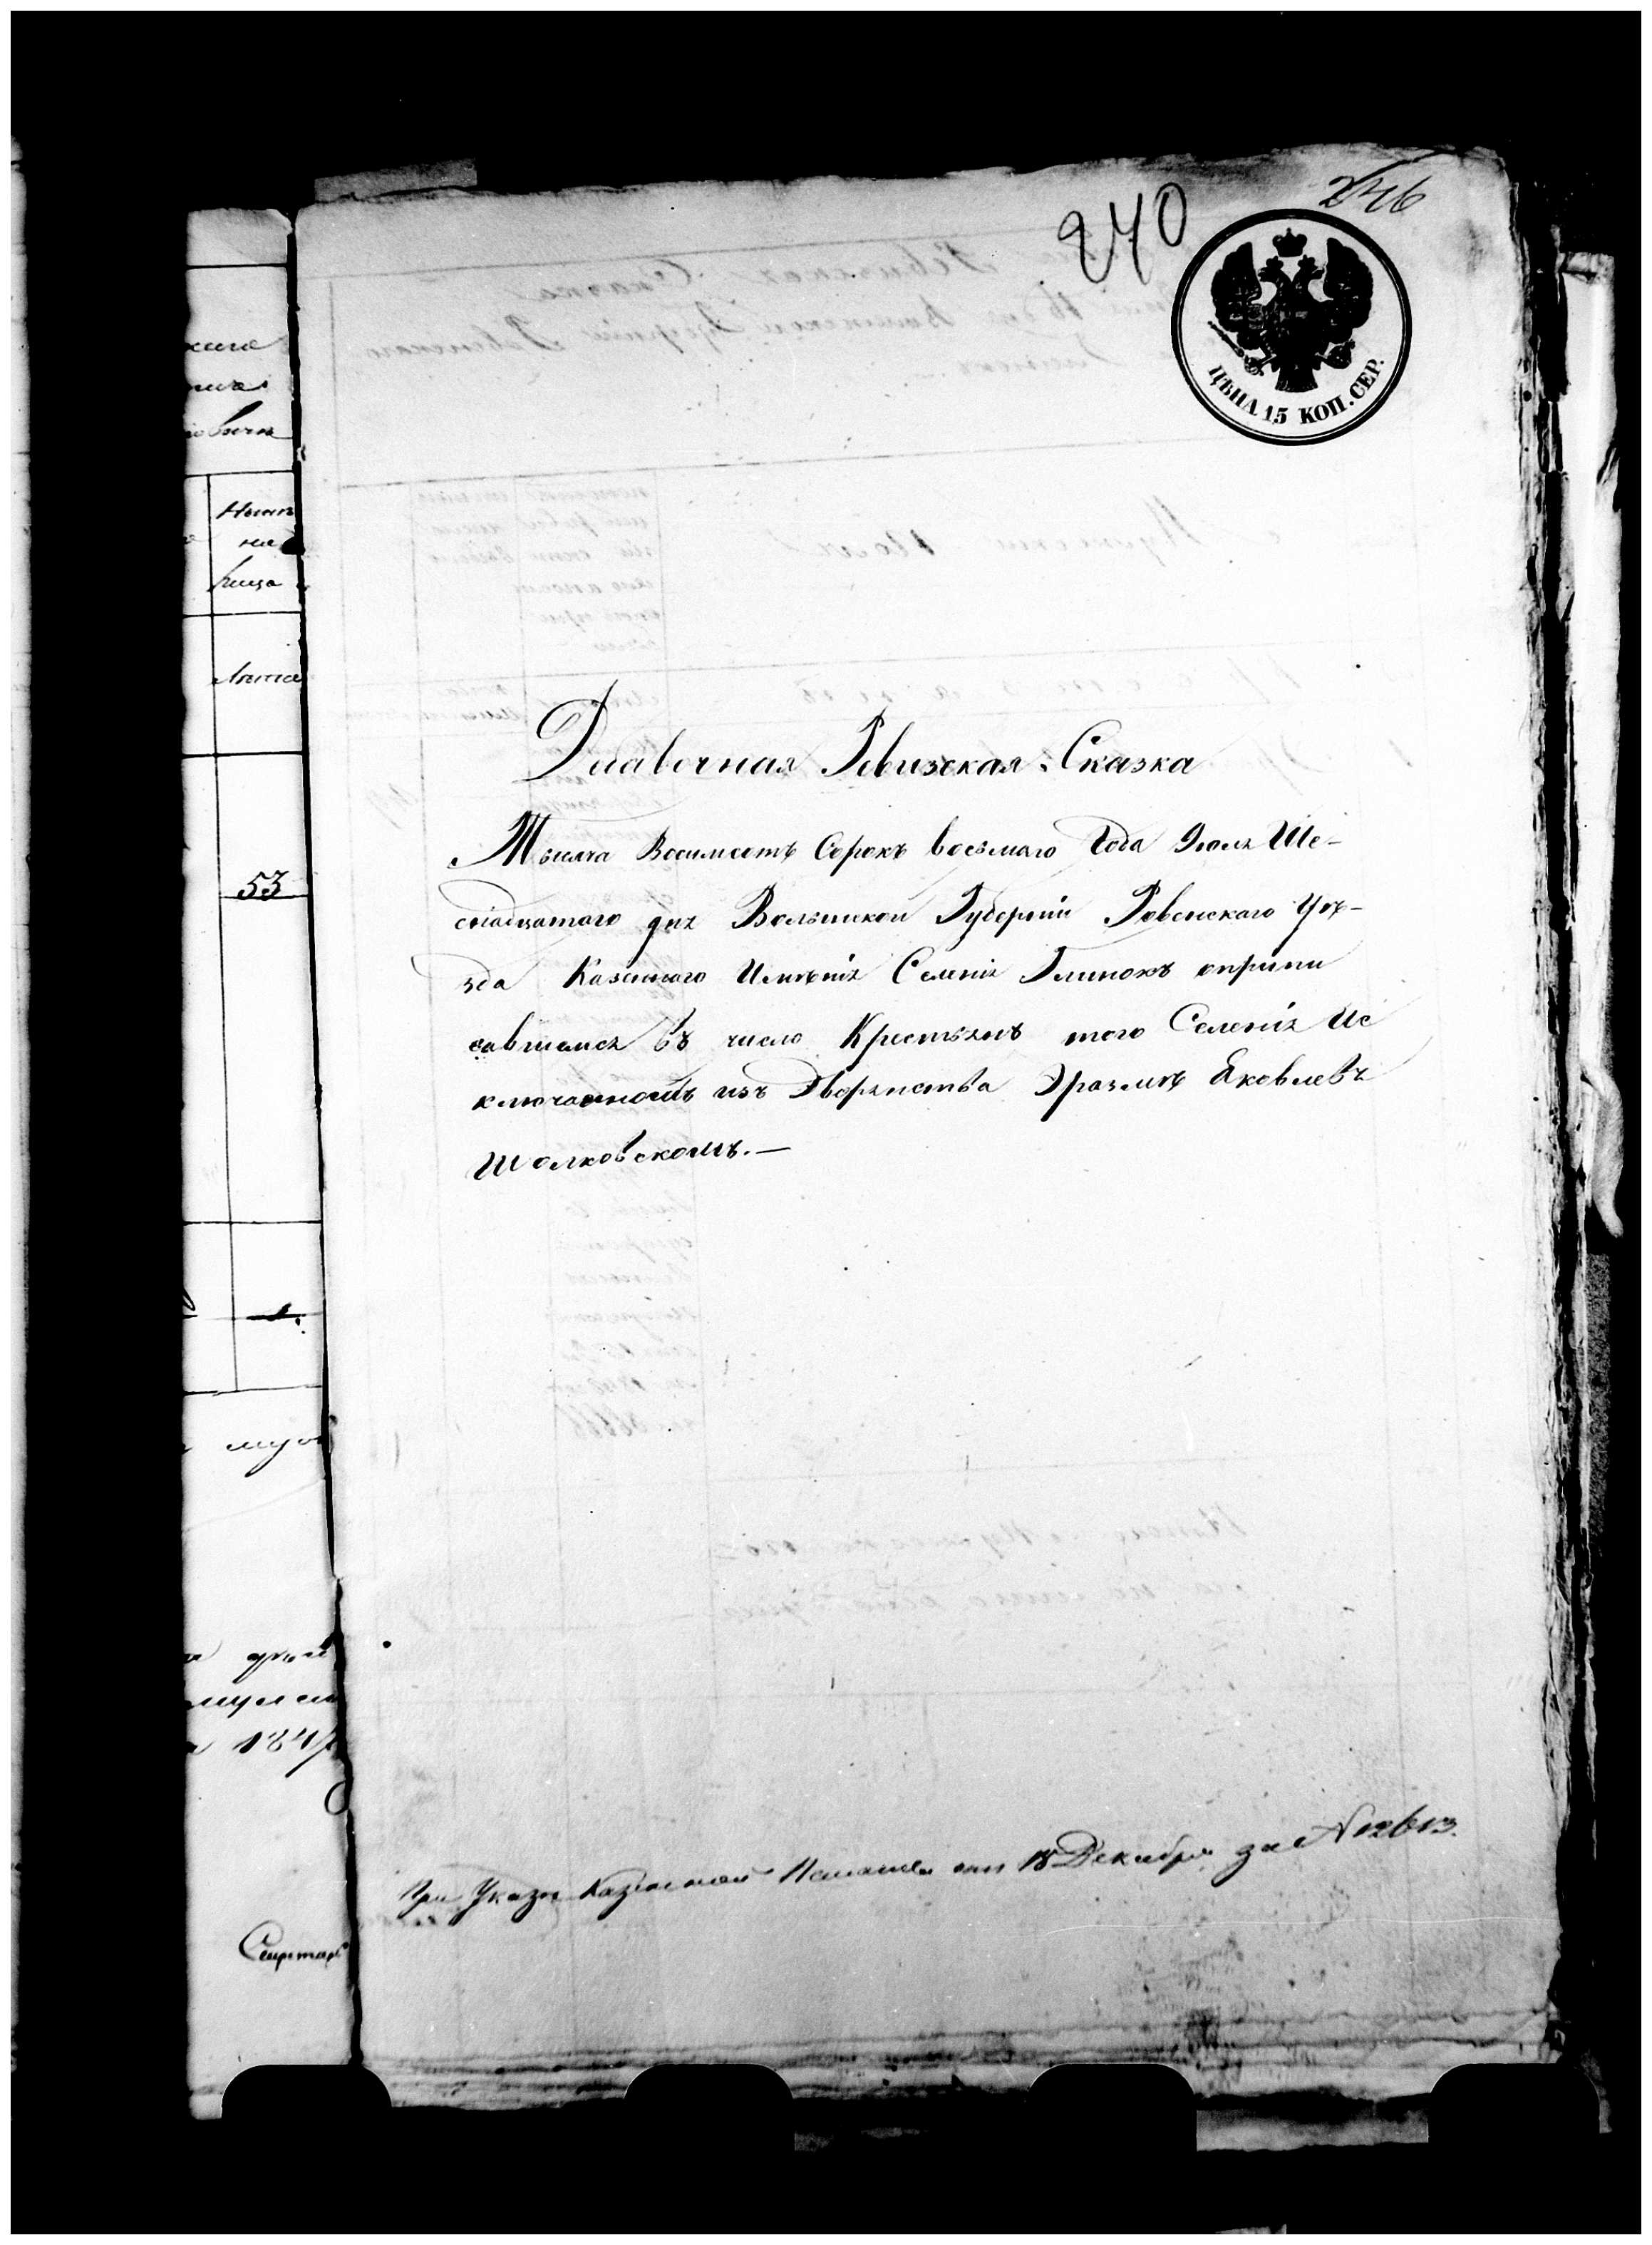 246
240
ЦѢНА 15 КОП. СЕР.
53
Добавочная Ревизская Сказка
Тысяча Восимсотъ Сорокъ восьмаго Года Іюля Ше-
снадцатого дня Волынской Губерніи Ровенского Уѣ-
зда Казенного Имѣнія Селенія Глинокъ оприпи
савшемся въ число Крестьянъ того Селенія Ис
ключенномъ изъ Дворянства Эразмѣ Яковлевѣ
Шолковскомъ.—
При Указѣ Казенной Палаты отъ 18 Декабря за N 12613.
Секретарь